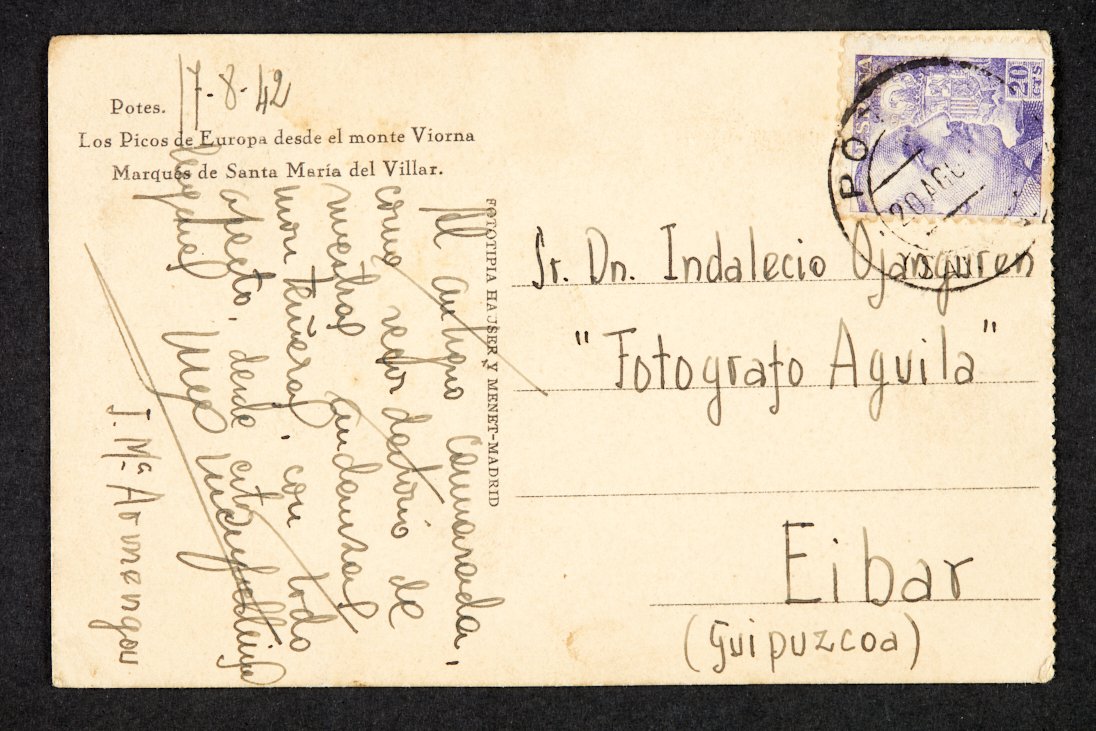 Potes.
17-8-42
Los Picos de Europa desde el monte Viorna
Marqués de Santa María del Villar.
FOTOTIPIA HAUSER Y MENET-MADRID
Al antiguo camarada,
como recordatorio de
nuestras andanzas
montañeras, con todo
afecto, desde
J. Mª Armengou
20 CTS
20 AGO
Sr. Dn. Indalecio Ojanguren
"Fotografo Aguila"
Eibar
(Guipuzcoa)